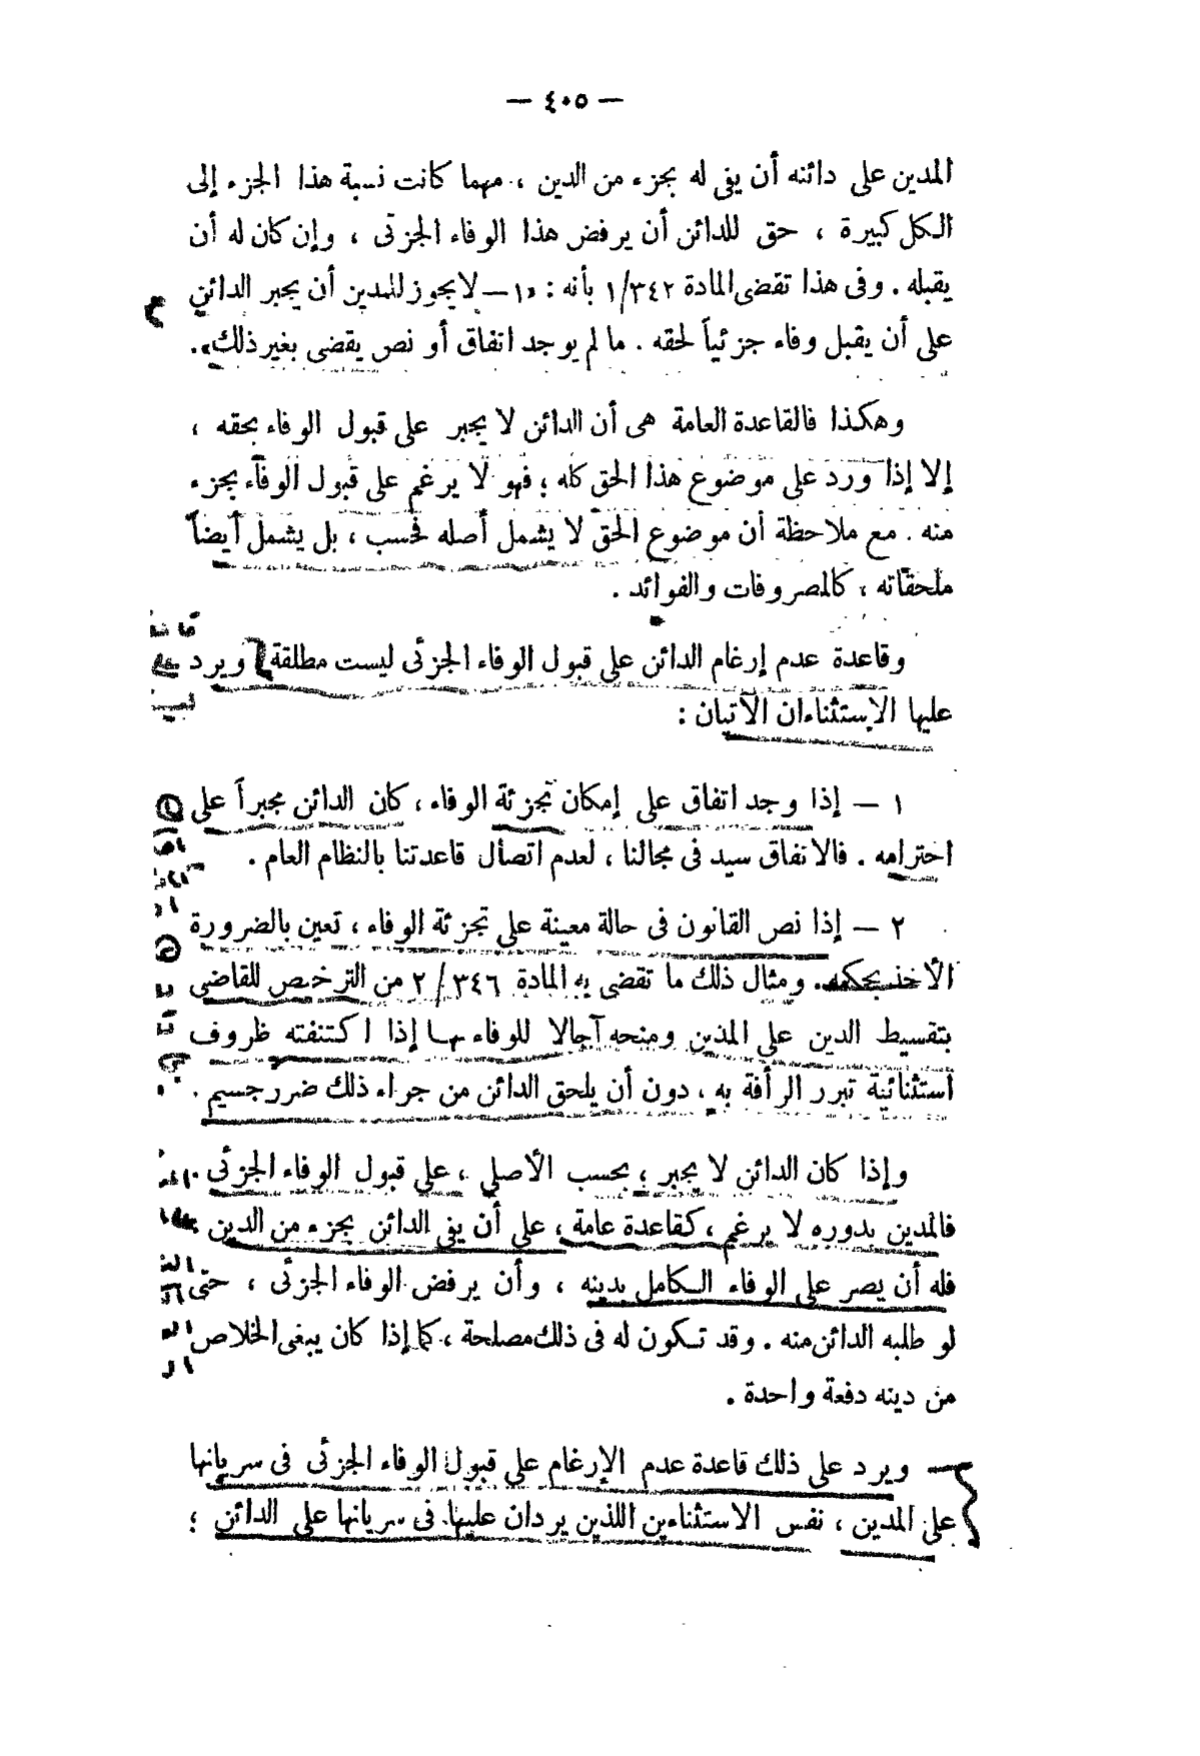 — ٤٠٥ —
المدين على دائنه أن يفى له بجزء من الدين ، مهما كانت نسبة هذا الجزء إلى
الكل كبيرة ، حق للدائن أن يرفض هذا الوفاء الجزئى ، وإن كان له أن
يقبله . وفى هذا تقضى المادة ١/٣٤٢ بأنه : «١ — لا يجوز للمدين أن يجبر الدائن
على أن يقبل وفاء جزئياً لحقه . ما لم يوجد اتفاق أو نص يقضى بغير ذلك» .
وهكذا فالقاعدة العامة هى أن الدائن لا يجبر على قبول الوفاء بحقه ،
إلا إذا ورد على موضوع هذا الحق كله ؛ فهو لا يرغم على قبول الوفاء بجزء
منه . مع ملاحظة أن موضوع الحق لا يشمل أصله فحسب ، بل يشمل أيضاً
ملحقاته ، كالمصروفات والفوائد .
وقاعدة عدم إرغام الدائن على قبول الوفاء الجزئى ليست مطلقة ويرد
عليها الاستثناءان الآتيان :
١ — إذا وجد اتفاق على إمكان تجزئة الوفاء ، كان الدائن مجبراً على
احترامه . فالاتفاق سيد فى مجالنا ، لعدم اتصال قاعدتنا بالنظام العام .
٢ — إذا نص القانون فى حالة معينة على تجزئة الوفاء ، تعين بالضرورة
الأخذ بحكمه . ومثال ذلك ما تقضى به المادة ٢/٣٤٦ من الترخيص للقاضى
بتقسيط الدين على المدين ومنحه آجالا للوفاء بها إذا اكتنفته ظروف
استثنائية تبرر الرأفة به ، دون أن يلحق الدائن من جراء ذلك ضرر جسيم .
وإذا كان الدائن لا يجبر ، بحسب الأصل ، على قبول الوفاء الجزئى .
فالمدين بدوره لا يرغم ، كقاعدة عامة ، على أن يفى الدائن بجزء من الدين .
فله أن يصر على الوفاء الكامل بدينه ، وأن يرفض الوفاء الجزئى ، حتى
لو طلبه الدائن منه . وقد تكون له فى ذلك مصلحة ، كما إذا كان يبغى الخلاص
من دينه دفعة واحدة .
ويرد على ذلك قاعدة عدم الإرغام على قبول الوفاء الجزئى فى سريانها
على المدين ، نفس الاستثناءين اللذين يردان عليها فى سريانها على الدائن ؛